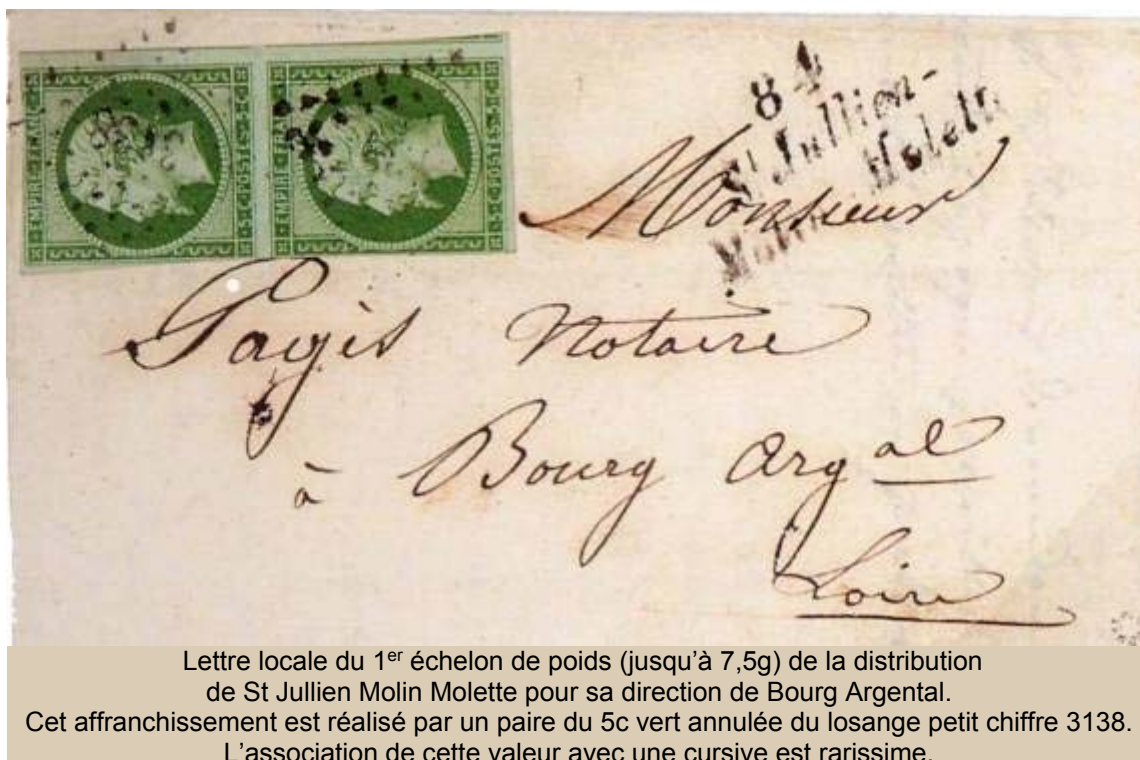 EMPIRE FRANC
POSTES
EMPIRE FRANC
POSTES
84
St Jullien-
Molette
Monsieur
Pagès Notaire
à Bourg Argal
Loire
Lettre locale du 1er échelon de poids (jusqu’à 7,5g) de la distribution
de St Jullien Molin Molette pour sa direction de Bourg Argental.
Cet affranchissement est réalisé par un paire du 5c vert annulée du losange petit chiffre 3138.
L’association de cette valeur avec une cursive est rarissime.